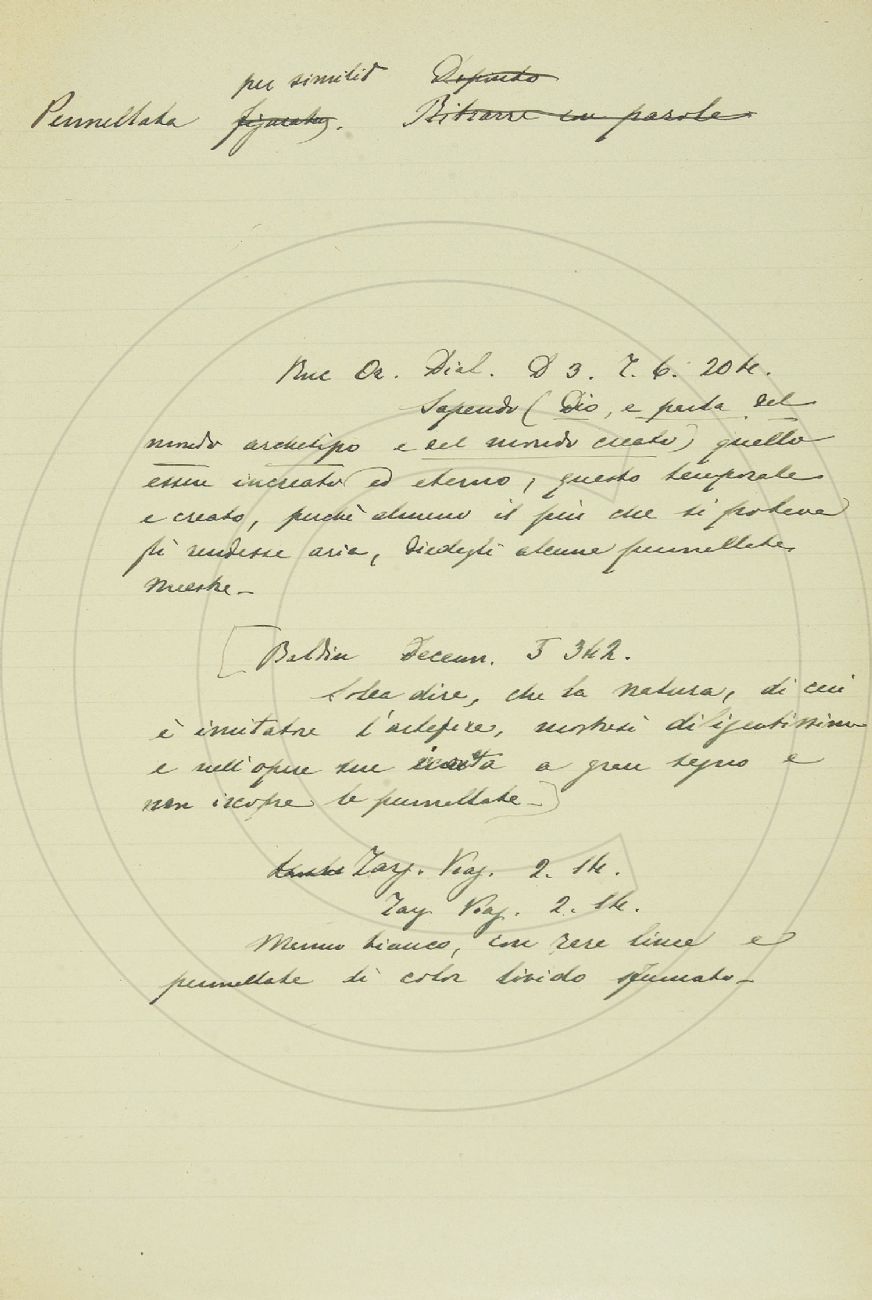 per similit ~~Dipinto~~
Pennellata ~~figurata~~. ~~Ritrarre in parole~~
Buc Oz. Dial. D 3. T. 6. 204.
Sapendo (Dio, e parla del
mondo archetipo e del mondo creato) quello
essere increato ed eterno, questo temporale
e creato, perchè almeno il più che si poteva
si rendesse aria, diedegli alcune pennellate
maestre_
[Baldin Decenn. 5 342.
Solea dire, che la natura, di cui
è imitatore l'artefice, mostresi diligentissima
e nell'opere sue a gran segno e
non iscopre le pennellate_]
Targ. Viag. 2. 14.
Targ Viag. 2. 14.
Marmo bianco, con rare linee e
pennellate di color livido sfumato_